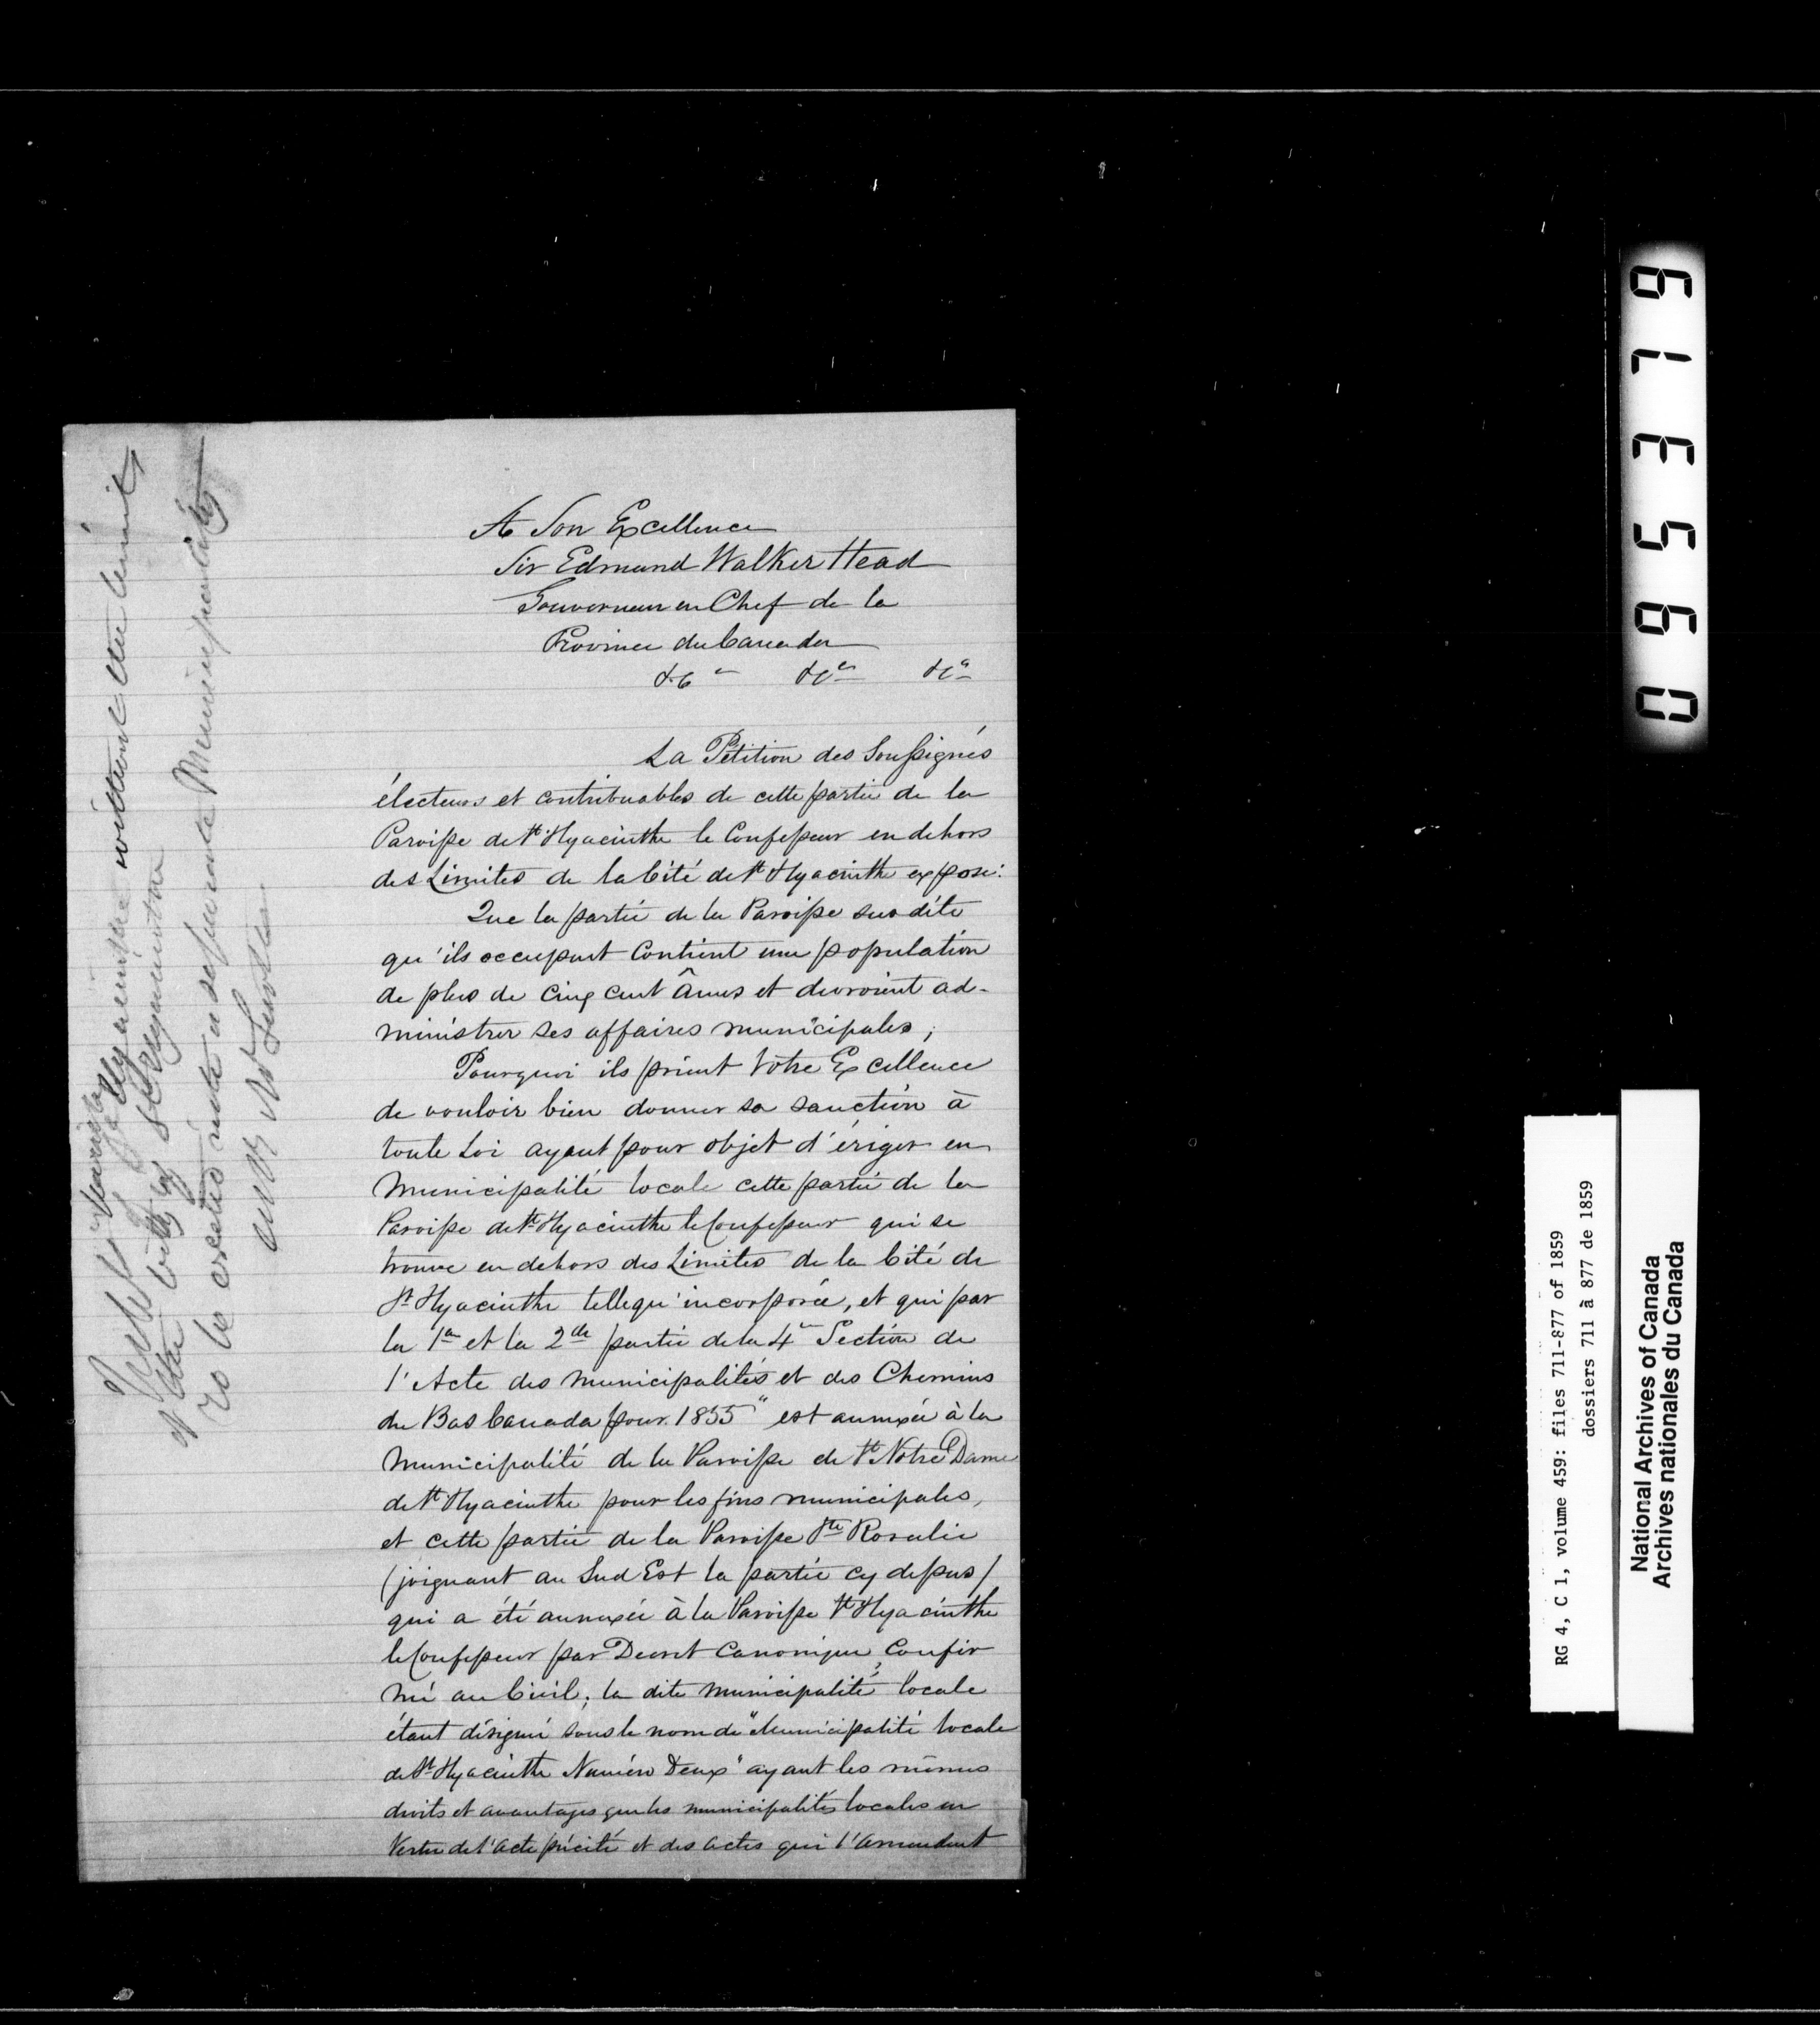 A Son Excellence
Sir Edmund Walker Head
Gouverneur en Chef de la
Province du Canada
&c &c &c
La Pétition des Soussignés
électeurs et contribuables de cette partie de la
Paroisse de St Hyacinthe le Confesseur en dehors
des Limites de la Cité de St Hyacinthe expose:
Que la partie de la Paroisse susdite
qu'ils occupent Contient une population
de plus de cinq cent Âmes et devroient ad-
ministrer ses affaires municipales;
Pourquoi ils prient Votre Excellence
de vouloir bien donner sa sanction à
toute Loi ayant pour objet d'ériger en
Municipalité locale cette partie de la
Paroisse de St Hyacinthe le Confesseur qui se
trouve en dehors des Limites de la Cité de
St Hyacinthe telle qu'incorporée, et qui par
la 1re et la 2de partie de la 4e Section de
l'Acte des Municipalités et des Chemins
du Bas Canada pour 1855" est annexée à la
Municipalité de la Paroisse de St Notre Dame
de St Hyacinthe pour les fins municipales,
et cette partie de la Paroisse Ste Rosalie
(joignant au Sud Est la partie cy dessus)
qui a été annexée à la Paroisse St Hyacinthe
le Confesseur par Decret Canonique, Confir
mé au Civil; la dite Municipalité locale
étant désigné sous le nom de "Municipalité locale
de St Hyacinthe Numéro Deux" ayant les mêmes
droits et avantages que les municipalités locales en
Vertu de l'acte précité et des actes qui l'amendent
parish
Hyacinthe without the limits
of the City of St Hyacinthe
to be erected into a separate Municipality
095319
RG 4, C 1, volume 459: files 711-877 of 1859
dossiers 711 à 877 de 1859
National Archives of Canada
Archives nationales du Canada